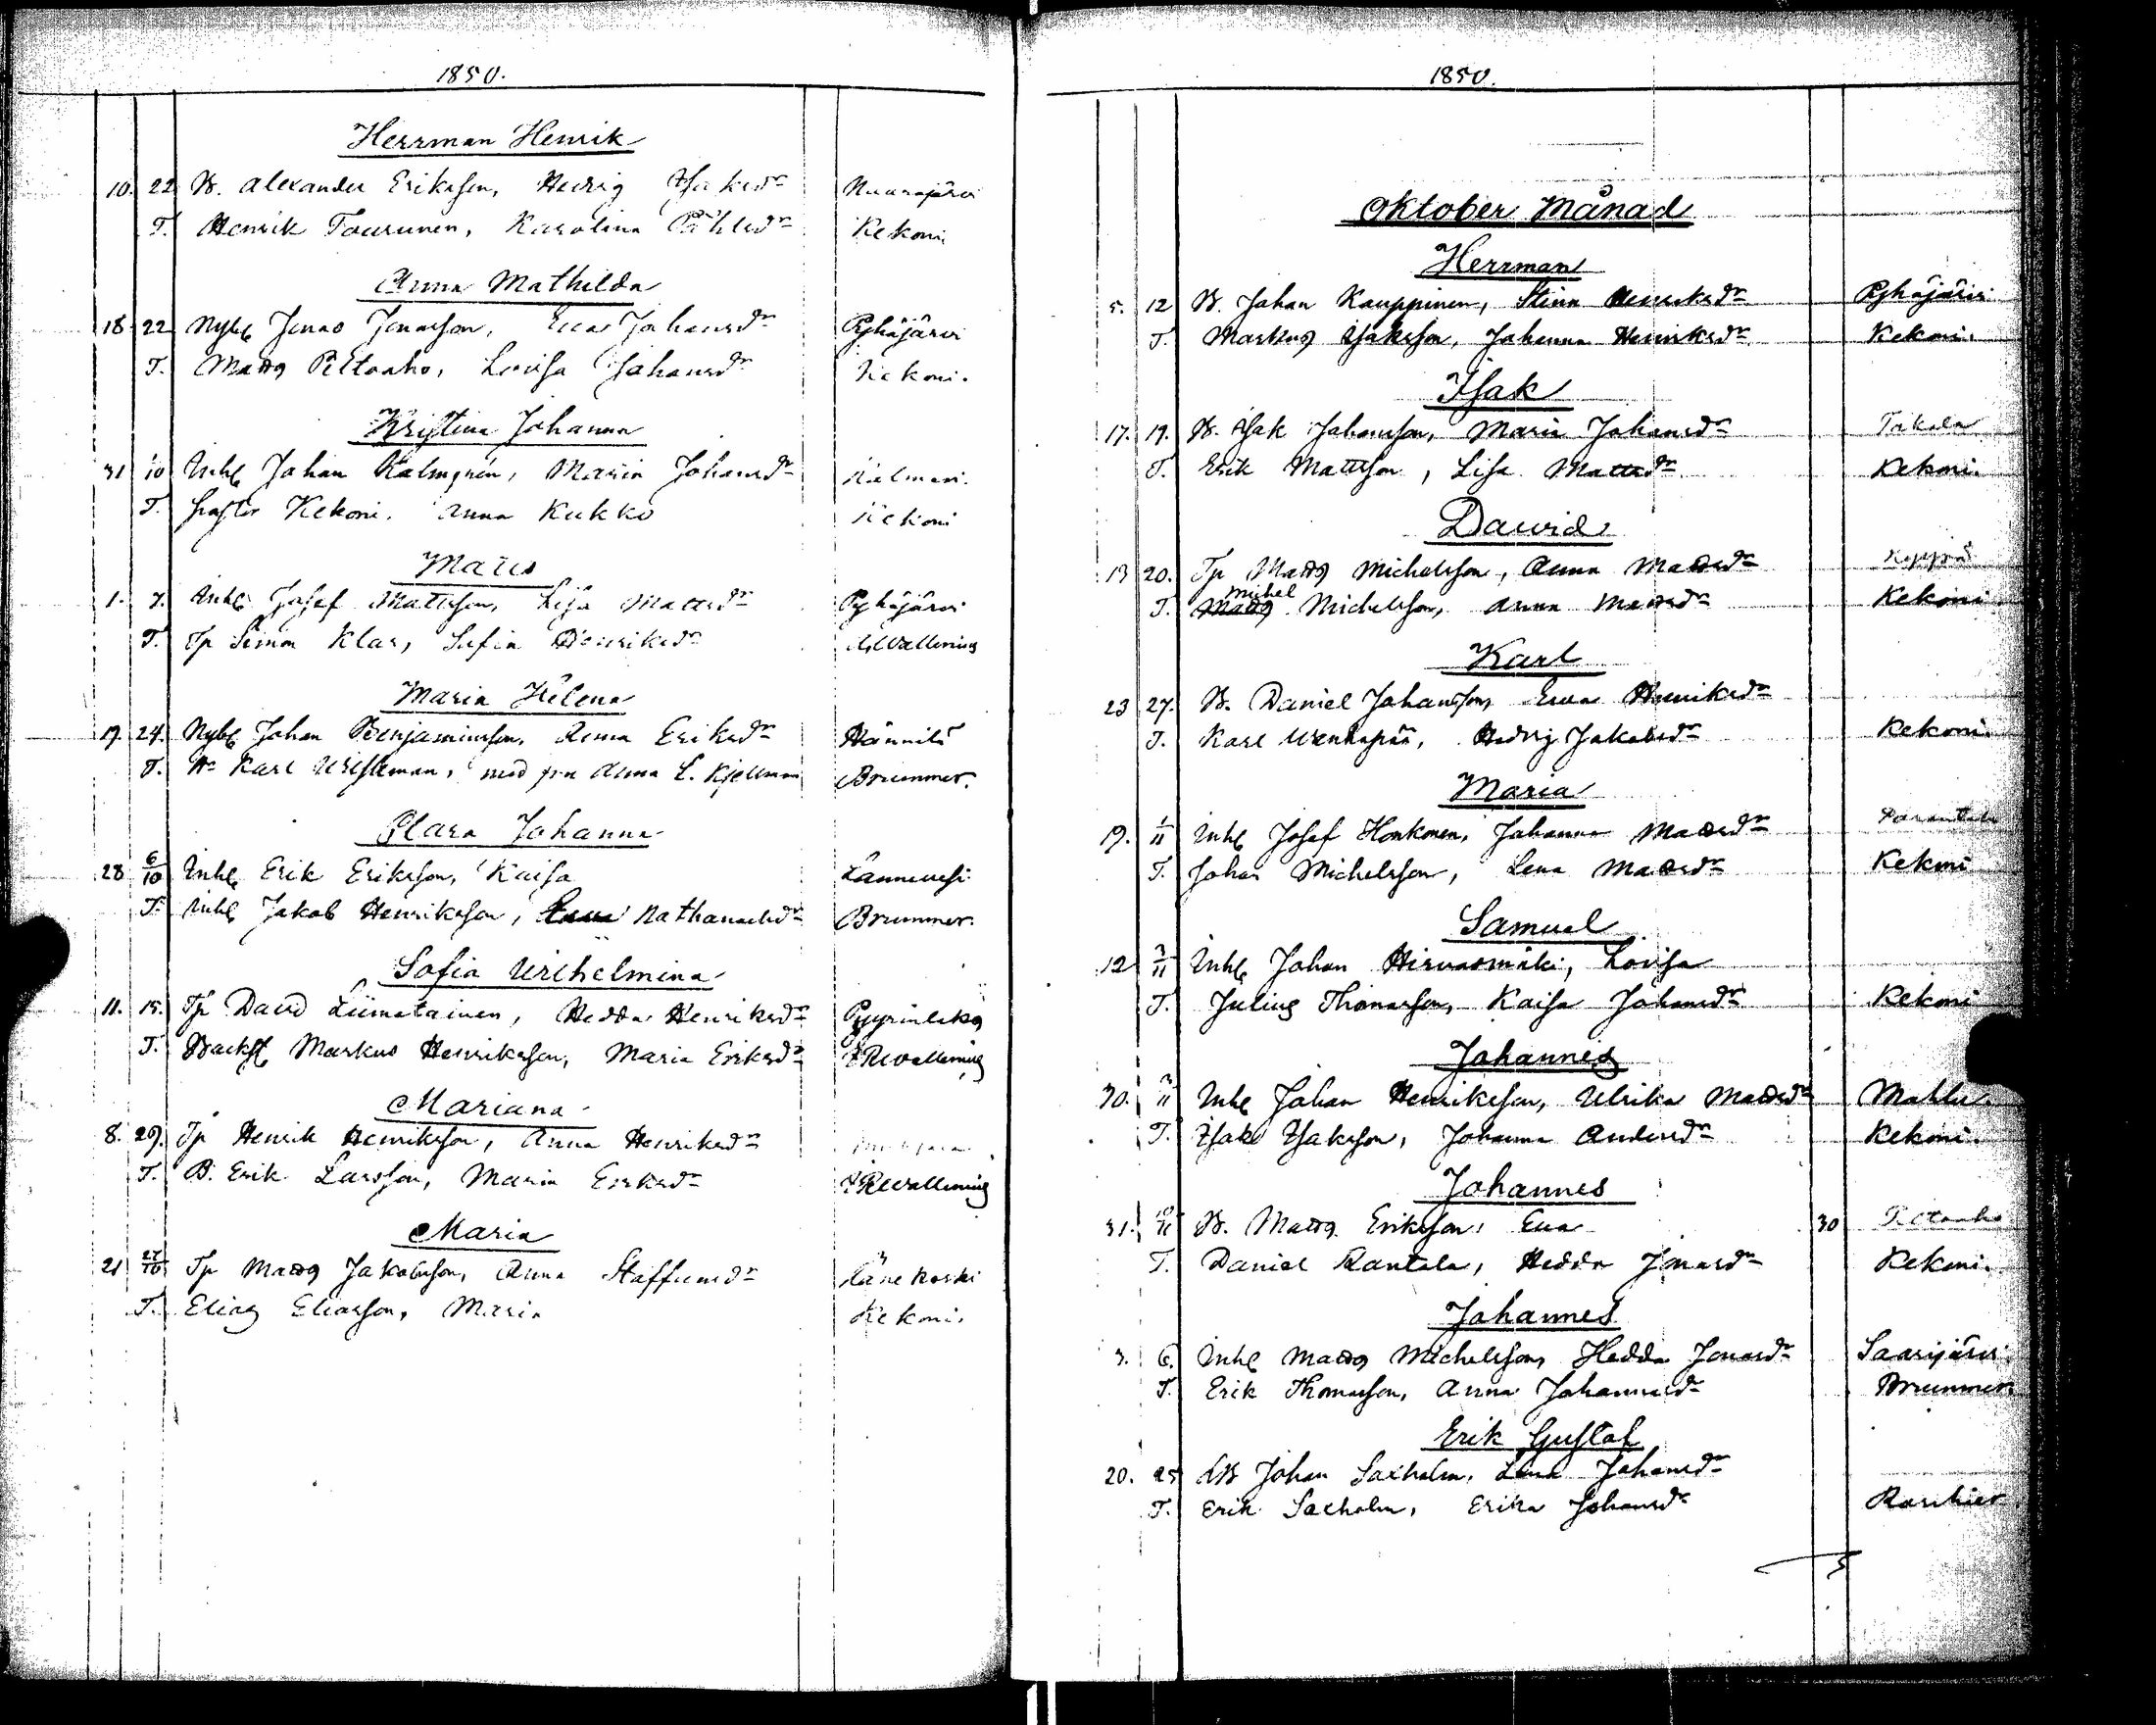 1850.
Herrman Henrik
10. 22 B. Alexander Eriksson, Hedvig Isaksdr Naarajärvi
T. Henrik Tourunen, Karolina Påhlsdr Kekoni
Anna Mathilda
18 22 Nybg Jonas Jonasson, Eva Johansdr Pyhäjärvi
T. Matts Piltoaho, Lovisa Johansdr Kekoni.
Kristina Johanna
31 1/10 Inhs Johan Kalmgrén, Maria Johansdr Kalmari.
T. Kekoni. Anna Kukko Kekoni
Maria
1. 7. Inhs Josef Mattsson, Lisa Mattsdr Pyhäjärvi
T. Tp Simon Klar, Sofia Henriksdr Wallenius
Maria Helena
19. 24. Nybg Johan Benjaminsson, Anna Eriksdr Hännilä
T. Karl med fru Anna L. Kjellman Brummer.
Clara Johanna
28 6/10 Inhs Erik Eriksson, Kaisa Lannevesi
T. Inhs Jakob Henriksson, Nathanaelsdr Brummer.
Sofia Wilhelmina
11. 15. Tp David Liimatainen, Hedda Henriksdr
T. Backst Markus Henriksson, Maria Eriksdr Wallenius
Mariana
8. 29. Tp Henrik Henriksson, Anna Henriksdr
T. B. Erik Larsson, Maria Eriksdr Wallenius
Maria
21 27/10 Tp Matts Jakobsson, Anna Staffansdr Äänekoski
T. Elias Eliasson, Maria Kekoni.
1850.
Oktober Månad
Herrman
5. 12 B. Johan Kauppinen, Stina Henriksdr Pyhäjärvi
T. Markus Isaksson, Johanna Henriksdr Kekoni.
Isak
17. 19. B. Isak Johansson, Maria Johansdr Takala
T. Erik Mattsson, Lisa Mattsdr Kekoni.
David
13 20. Tp Matts Michelsson, Anna Mattsdr
T. Michel Michelsson, Anna Mattsdr Kekoni
Karl
23 27. B. Daniel Johansson, Eva Henriksdr
T. Karl Hedvig Jakobsdr Kekoni.
Maria
19. 1/11 Inhs Josef Honkonen, Johanna Mattsdr
T. Johan Michelsson, Lena Mattsdr Kekoni
Samuel
12 3/11 Inhs Johan Hirvasmäki, Lovisa
T. Julius Thomasson, Kaisa Johansdr Kekoni
Johannes
30. 3/11 Inhs Johan Henriksson, Ulrika Mattsdr Mahlu.
T. Isak Isaksson, Johanna Andersdr Kekoni.
Johannes
31. 10/11 B. Matts Eriksson, Eva 30
T. Daniel Rantala, Hedda Jonasdr Kekoni.
Johannes
3. 6. Inhs Matts Michelsson, Hedda Jonasdr Saarijärvi.
T. Erik Thomasson, Anna Johannesdr Brummer.
Erik Gustaf
20. 25 Johan Saxholm, Lena Johansdr
T. Erik Saxholm, Erika Johansdr